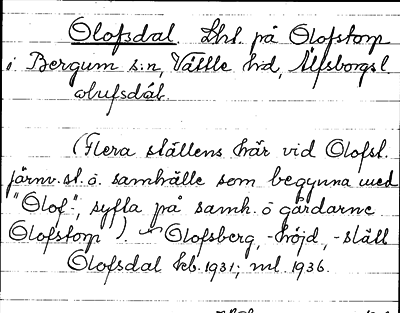 Olofsdal. Lht. på Olofstorp
i Bergum s:n, Vättle hd, Älfsborgs l.
olufsdál.
(Flera ställens här vid Olofst.
järnv.st. o. samhälle som begynna med
"Olof-", syfta på samh. o gårdarne
Olofstorp) Olofsberg, -höjd, -släll
Olofsdal kb. 1931; ml. 1936.